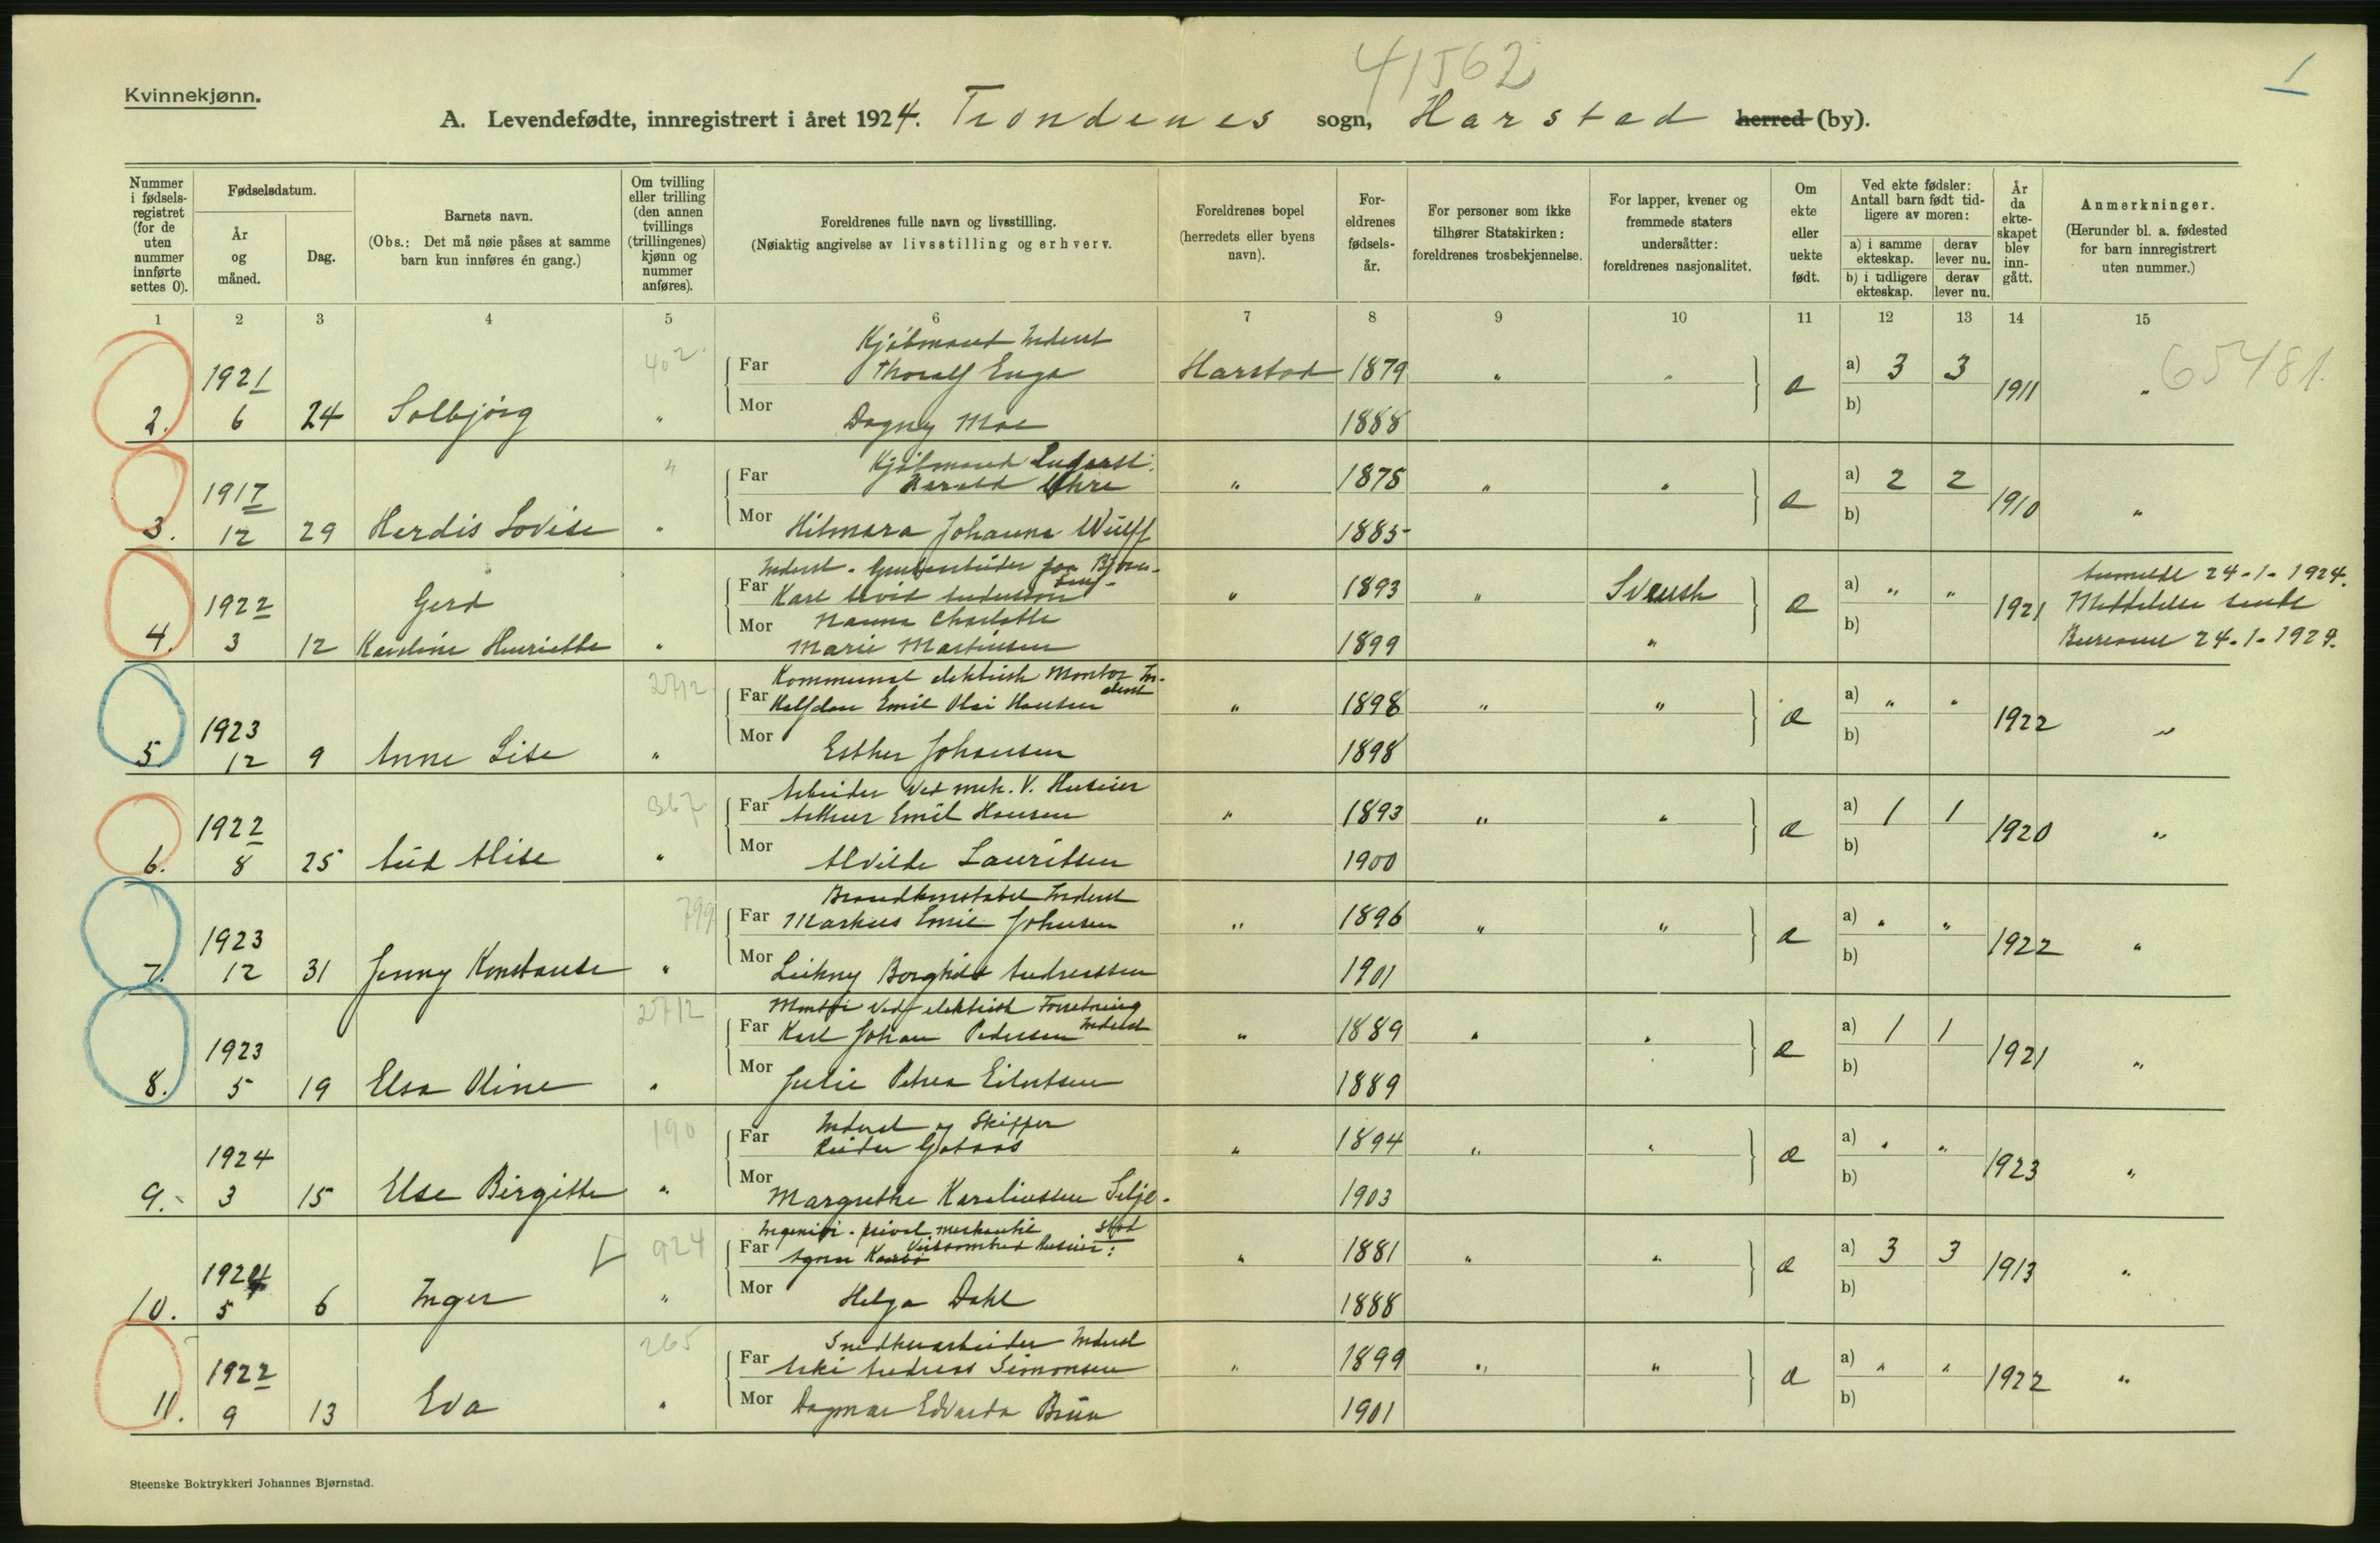 41562
1
Kvinnekjønn.
A. Levendefødte, innregistrert i året 1924. Trondenes sogn, Harstad herred (by).
Nummer i fødsels-registret (for de uten nummer innførte settes 0).
Fødselsdatum.
År og måned.
Dag.
Barnets navn.
(Obs.: Det må nøie påses at samme barn kun innføres én gang.)
Om tvilling eller trilling (den annen tvillings (trillingenes) kjønn og nummer anføres).
Foreldrenes fulle navn og livsstilling.
(Nøiaktig angivelse av livsstilling og erhverv.
Foreldrenes bopel (herredets eller byens navn).
For-eldrenes fødsels-år.
For personer som ikke tilhører Statskirken: foreldrenes trosbekjennelse.
For lapper, kvener og fremmede staters undersåtter: foreldrenes nasjonalitet.
Om ekte eller uekte født.
Ved ekte fødsler: Antall barn født tid-ligere av moren:
a) i samme ekteskap.
derav lever nu.
b) i tidligere ekteskap.
derav lever nu.
År da ekte-skapet blev inn-gått.
Anmerkninger.
(Herunder bl. a. fødested for barn innregistrert uten nummer.)
1 2 3 4 5 6 7 8 9 10 11 12 13 14 15
Kjøbmand Inderst
402
1921 Far Thoralf Enga Harstad 1879 " " a) 3 3 65481.
2. 6 24 Solbjörg " Mor Dagny Moe 1888 e b) 1911 "
Kjøbmand
1917 " Far Harald Uhre " 1875 " " a) 2 2
3. 12 29 Herdis Lovise " Mor Hilmara Johanna Wulff 1885 e b) 1910 "
Inderst
1922 Gerd Far Karl Arvid Andersson " 1893 " Svensk a) " " Anmeldt 24-1-1924.
Nanna Charlotte
4. 3 12 Karoline Henriette " Mor Marie Martinsen 1899 " e b) 1921 24-1-1924.
Kommunal elektrisk Montør In-derst
2712
1923 Far Halfdan Emil Olai Hansen " 1898 " " a) " "
5. 12 9 Anne Lise " Mor Esther Johansen 1898 e b) 1922 "
Arbeider ved mek. V. Huseier
367
1922 Far Arthur Emil Hansen " 1893 " " a) 1 1
6. 8 25 Aud Alise " Mor Alvilde Lauritsen 1900 e b) 1920 "
Brandkonstabel Inderst
799
1923 Far Markus Emil Johnsen " 1896 " " a) " "
7. 12 31 Jenny Konstanse " Mor Leikny Borghild Andreassen 1901 e b) 1922 "
Montør ved elektrisk Forretning Inderst
2712
1923 Far Karl Johan Pedersen " 1889 " " a) 1 1
8. 5 19 Elsa Oline " Mor Julie Petrea Eilertsen 1889 e b) 1921 "
Inderst og Skipper
190
1924 Far Reidar " 1894 " " a) " "
9. 3 15 Else Birgitte " Mor Margrethe Karoliussen Selje- 1903 e b) 1923 "
stad
Ingeniør - privat merkantil Virksomhed Huseier:
924
1924 Far Agnar " 1881 " " a) 3 3
10. 5 6 Inger " Mor Helga Dahl 1888 e b) 1913 "
Snedkerarbeider Inderst
265
1922 Far Andreas Simonsen " 1899 " " a) " "
11. 9 13 Eva " Mor Dagmar Edvarda Brun 1901 e b) 1922 "
Steenske Boktrykkeri Johannes Bjørnstad.